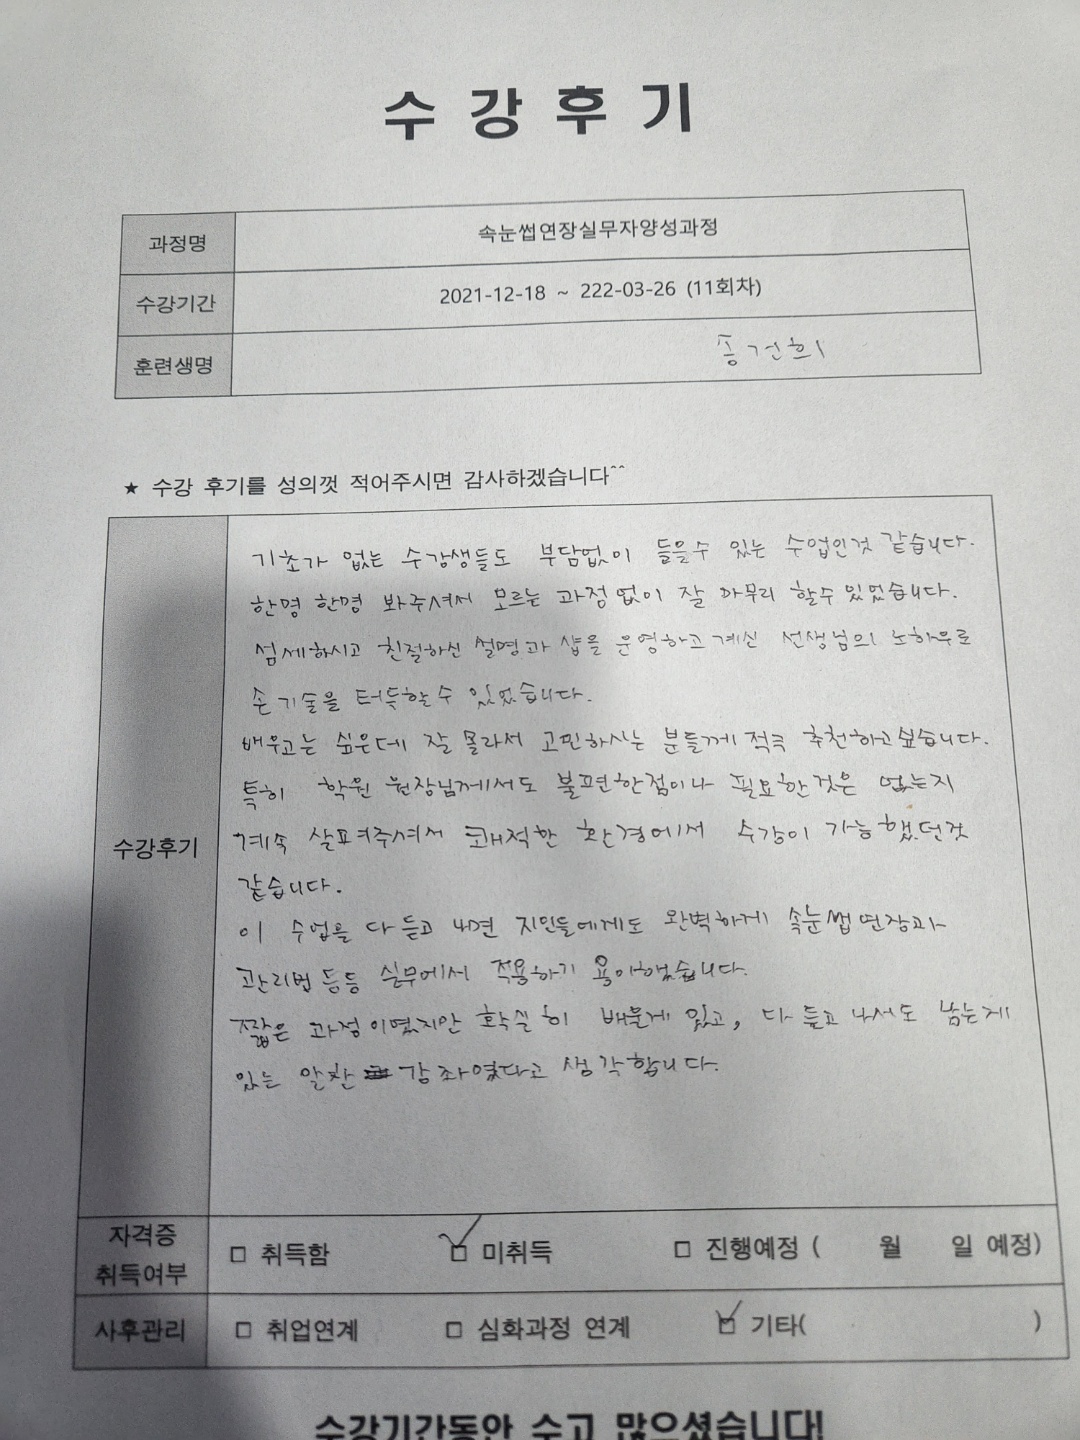 수강후기
과정명 속눈썹연장실무자양성과정
수강기간 2021-12-18 ~ 222-03-26 (11회차)
훈련생명 송건희
★ 수강 후기를 성의껏 적어주시면 감사하겠습니다^^
기초가 없는 수강생들도 부담없이 들을수 있는 수업인것 같습니다.
한명 한명 봐주셔서 모르는 과정 없이 잘 마무리 할수 있었습니다.
섬세하시고 친절하신 설명과 샵을 운영하고 계신 선생님의 노하우로
손 기술을 터득할 수 있었습니다.
배우고는 싶은데 잘 몰라서 고민하시는 분들께 적극 추천하고싶습니다.
특히 학원 원장님께서도 불편한점이나 필요한것은 없는지
수강후기
계속 살펴주셔서 쾌적한 환경에서 수강이 가능했던것
같습니다.
이 수업을 다 듣고 나면 지인들에게도 완벽하게 속눈썹연장과
관리법 등등 실무에서 적용하기 용이했습니다.
짧은 과정이였지만 확실히 배울게 있고, 다 듣고 나서도 남는게
있는 알찬 강좌였다고 생각합니다.
자격증 취득여부 □ 취득함 ☑ 미취득 □ 진행예정 ( 월 일 예정)
사후관리 □ 취업연계 □ 심화과정 연계 ☑ 기타( )
수강기간동안 수고 많으셨습니다!